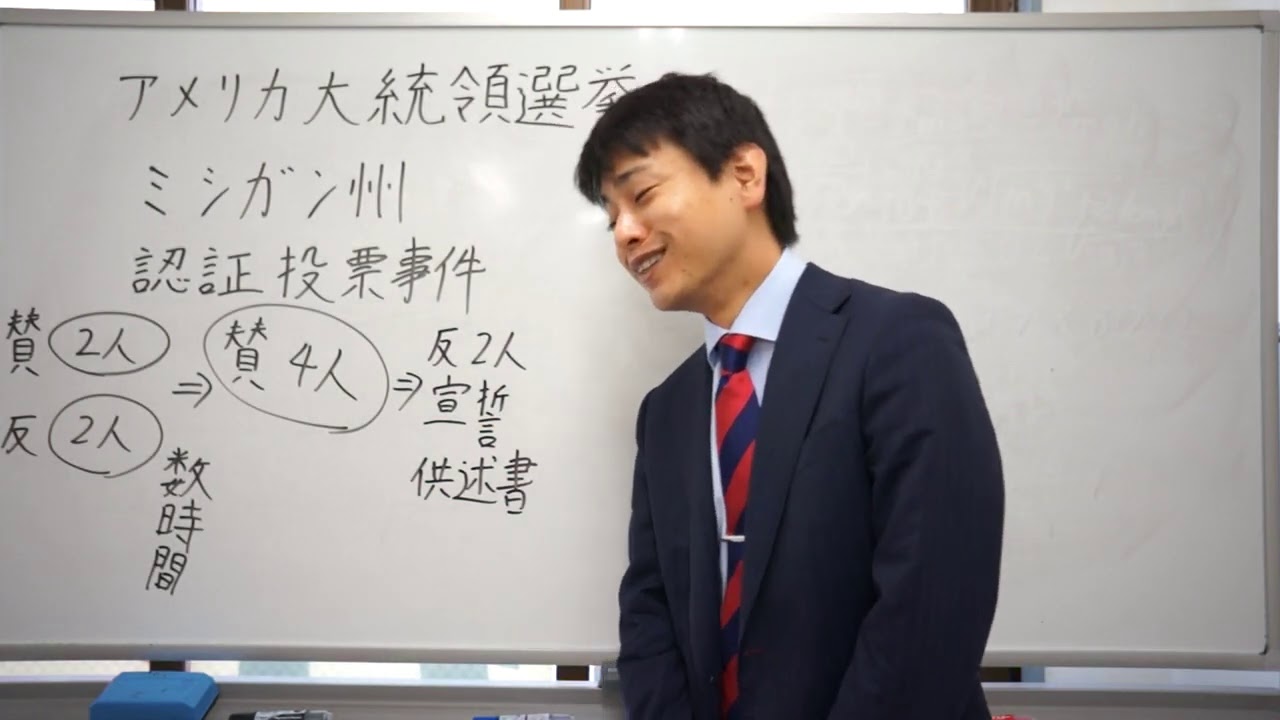 アメリカ大統領選挙
ミシガン州
認証投票事件
賛 2人 ⇒ 賛 4人 ⇒ 反2人
反 2人 宣誓
供述書
数時間